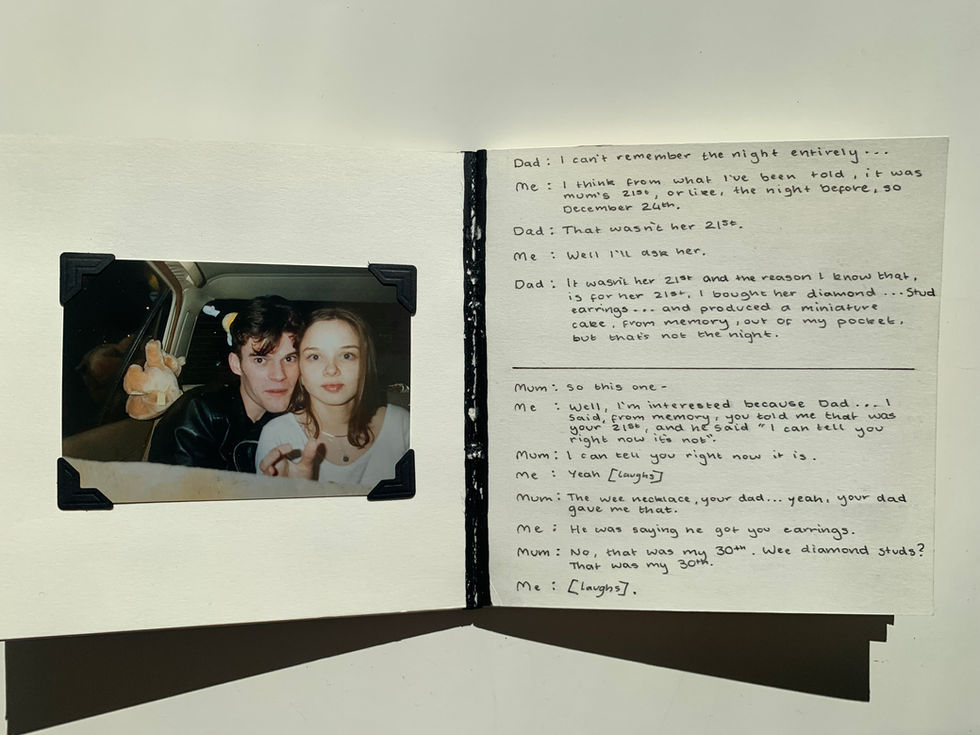 Dad : I can't remember the night entirely ...
Me : I think from what I've been told, it was
mum's 21st, or like, the night before, so
December 24th.
Dad : That wasn't her 21st.
Me : Well I'll ask her.
Dad : It wasn't her 21st and the reason I know that,
is for her 21st, I bought her diamond ... stud
earrings ... and produced a miniature
cake, from memory, out of my pocket,
but that's not the night.
Mum : So this one -
Me : Well, I'm interested because Dad ... I
said, from memory, you told me that was
your 21st, and he said "I can tell you
right now it's not".
Mum : I can tell you right now it is.
Me : Yeah [laughs]
Mum : The wee necklace, your dad... yeah, your dad
gave me that.
Me : He was saying he got you earrings.
Mum : No, that was my 30th. Wee diamond studs?
That was my 30th.
Me : [laughs].